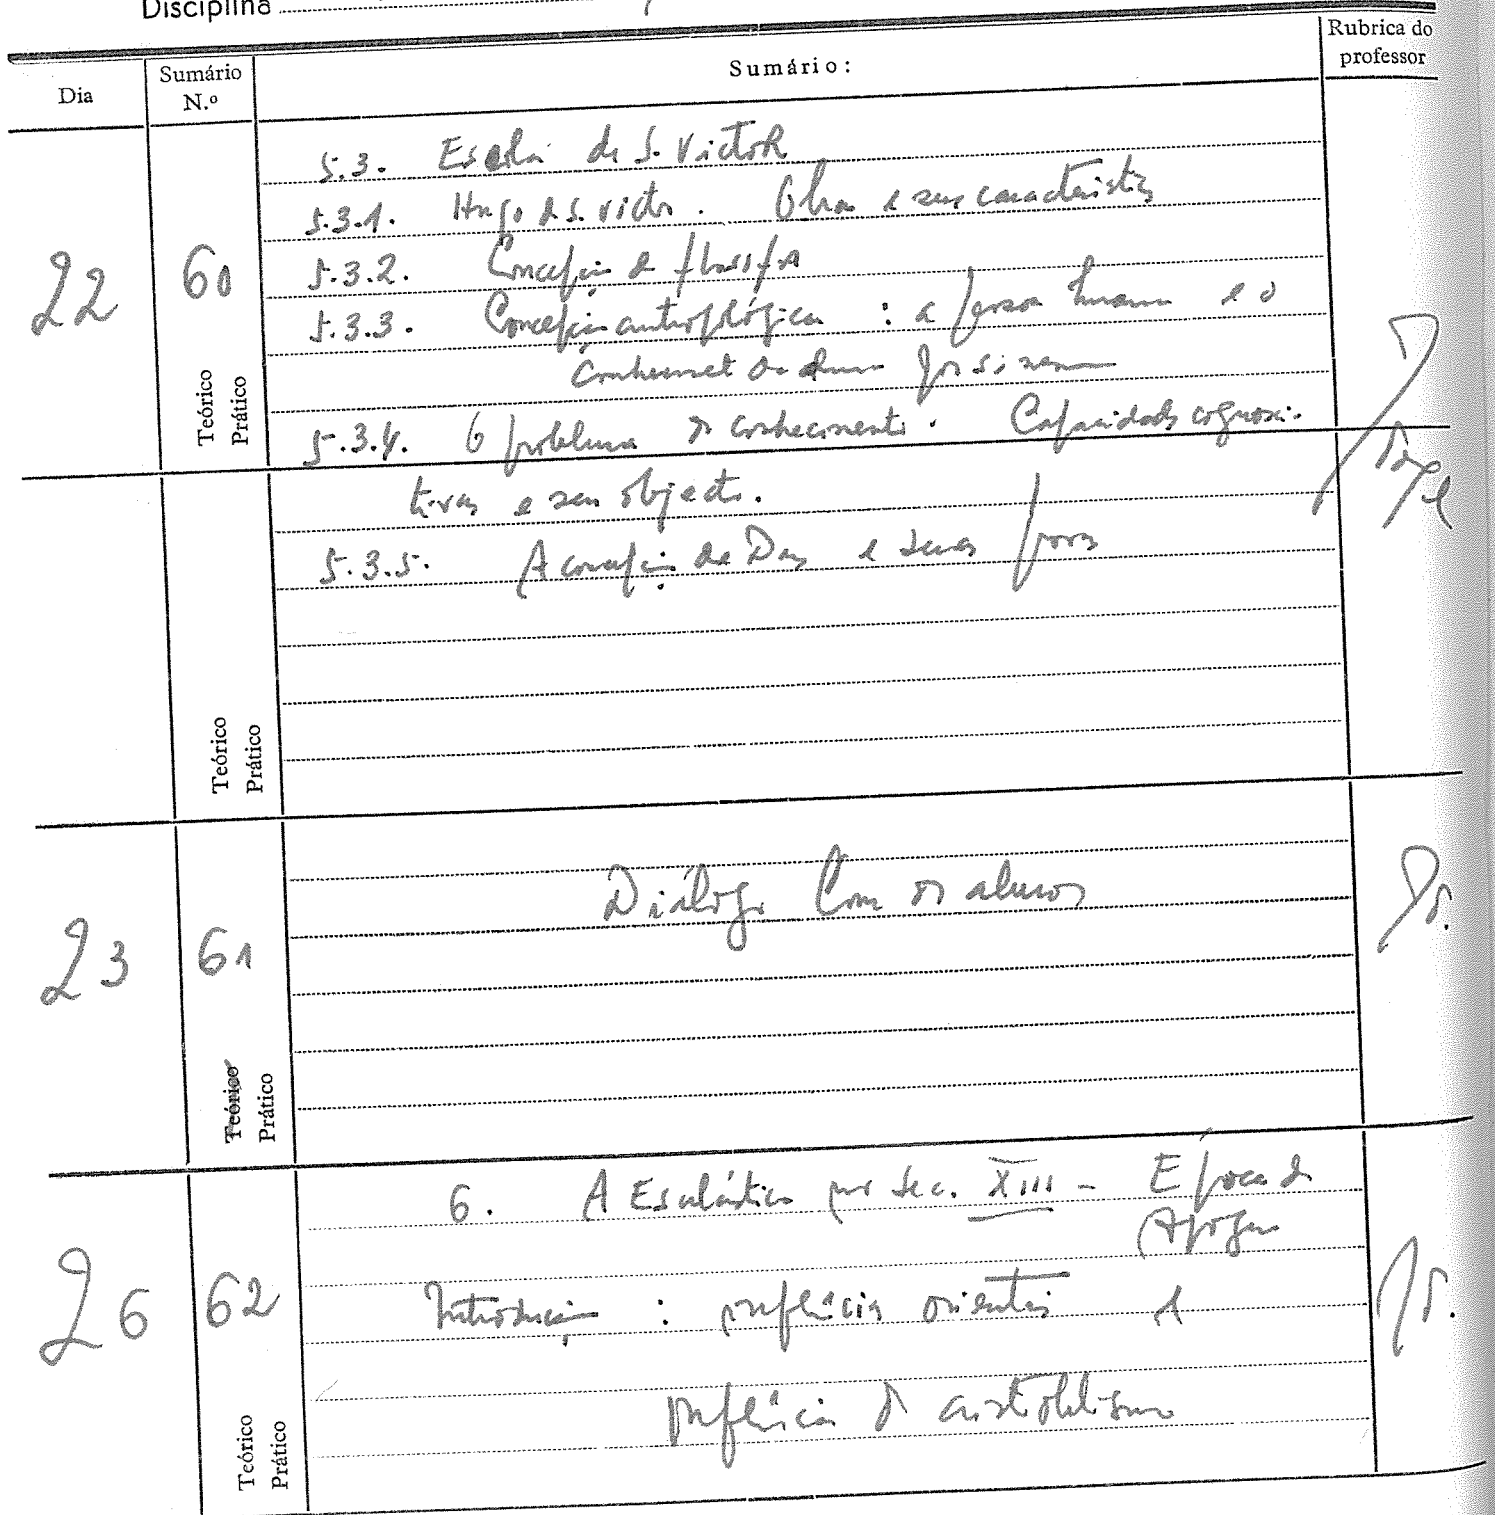 Disciplina
Dia
Sumário N.º
Sumário:
Rubrica do professor
22
60
Teórico
Prático
5.3. Escola de S. Victor
5.3.1. Hugo de S. Victor. Obra e suas características
5.3.2. Concepção de filosofia
5.3.3. Concepção antropológica : a pessoa humana e o
conhecimento da alma por si mesma
5.3.4. O problema do conhecimento. Capacidades cognosci-
tivas e seu objecto.
5.3.5. A concepção de Deus e suas provas
Teórico
Prático
23
61
Teórico
Prático
Diálogo com os alunos
26
62
Teórico
Prático
6. A Escolástica no sec. XIII - Época do
Apogeu
Introdução : influências orientais e
influência do aristotelismo